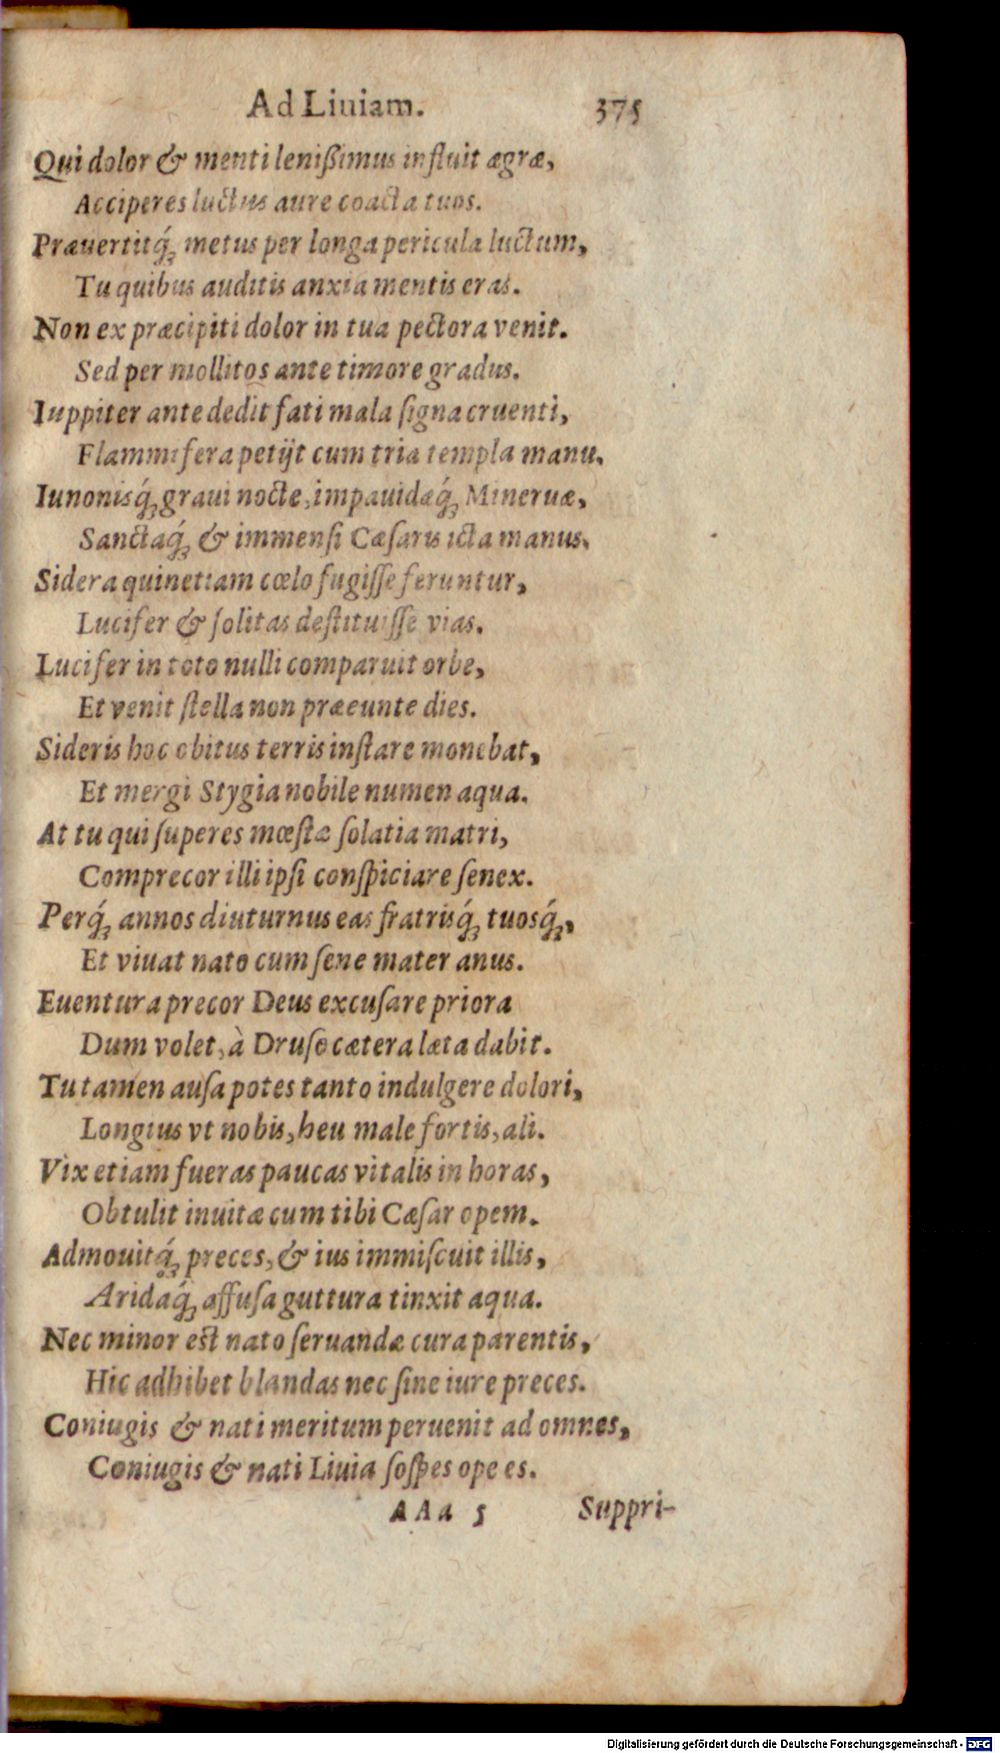 Ad Liuiam. 375
Qui dolor & menti lenißimus influit ægræ,
Acciperes luctus aure coacta tuos.
Præuertitq́; metus per longa pericula luctum,
Tu quibus auditis anxia mentis eras.
Non ex præcipiti dolor in tua pectora venit.
Sed per mollitos ante timore gradus.
Iuppiter ante dedit fati mala ſigna cruenti,
Flammifera petijt cum tria templa manu.
Iunonisq́; graui nocte, impauidæq́; Mineruæ,
Sanctaq́; & immenſi Cæſaris icta manus.
Sidera quinetiam cœlo fugiſſe feruntur,
Lucifer & ſolitas deſtituiſſe vias.
Lucifer in toto nulli comparuit orbe,
Et venit ſtella non præeunte dies.
Sideris hoc obitus terris inſtare monebat,
Et mergi Stygia nobile numen aqua.
At tu qui ſuperes mœſtæ ſolatia matri,
Comprecor illi ipſi conſpiciare ſenex.
Perq́; annos diuturnus eas fratrisq́; tuosq́;,
Et viuat nato cum ſene mater anus.
Euentura precor Deus excuſare priora
Dum volet, à Druſo cætera læta dabit.
Tu tamen auſa potes tanto indulgere dolori,
Longius vt nobis, heu male fortis, ali.
Vix etiam fueras paucas vitalis in horas,
Obtulit inuitæ cum tibi Cæſar opem.
Admouitq́; preces, & ius immiſcuit illis,
Aridaq́; affuſa guttura tinxit aqua.
Nec minor eſt nato ſeruandæ cura parentis,
Hic adhibet blandas nec ſine iure preces.
Coniugis & nati meritum peruenit ad omnes,
Coniugis & nati Liuia ſoſpes ope es.
AAa 5 Suppri-
Digitalisierung gefördert durch die Deutsche Forschungsgemeinschaft - DFG